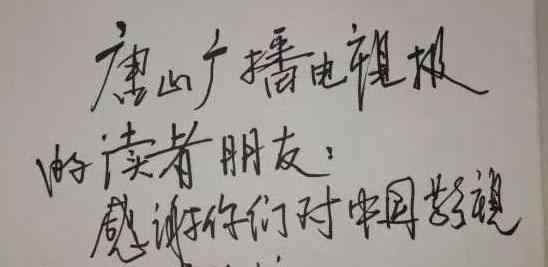 唐山广播电视报
的读者朋友：
感谢你们对中国影视